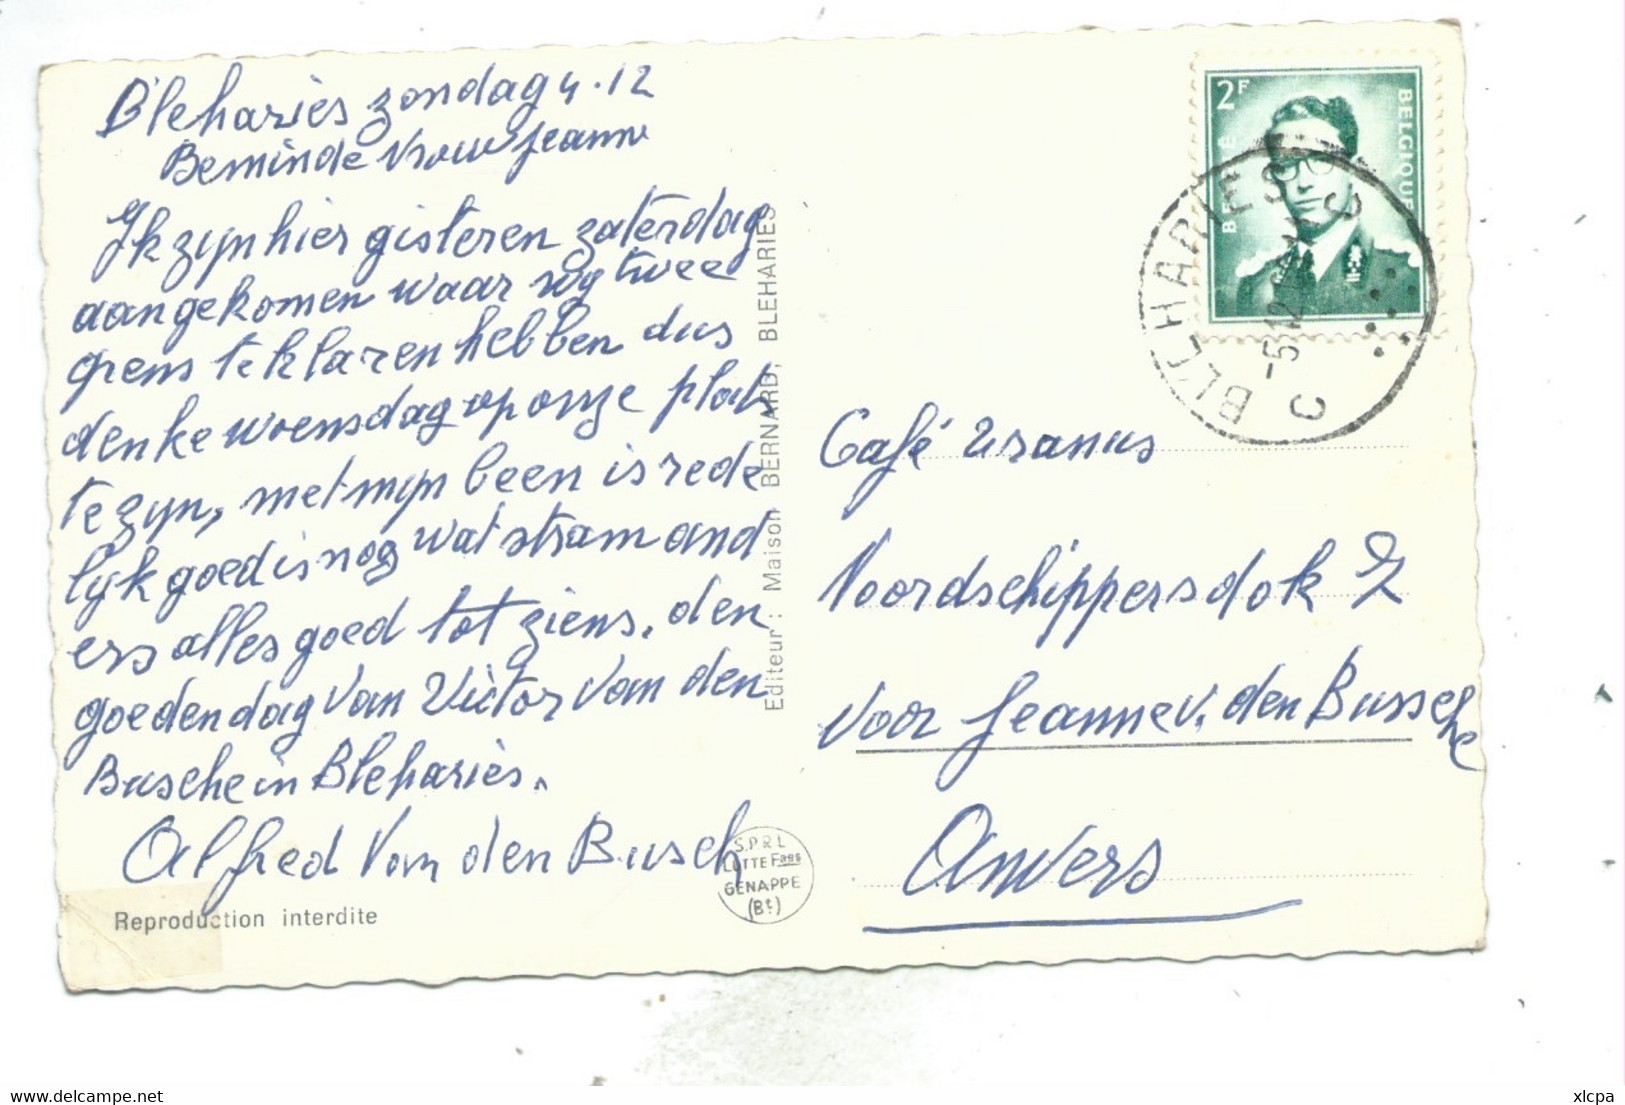 Bleharies zondag 4.12
Beminde vrouw Jeanne
Ik zijn hier gisteren zaterdag
aangekomen waar wij twee
grens te klaren hebben dus
denke woensdag op onze plak
te zijn, met mijn been is rede
lijk goed is nog wat stram and
ers alles goed tot ziens, den
goeden dag van Victor van den
Busche in Bleharies.
Alfred Van den Busch
Reproduction interdite
Editeur : Maison BERNARD, BLEHARIES
S.P.R.L
LUTTE Faes
GENAPPE
(Bt)
2F
BELGIË
BELGIQUE
BLEHARIES
-5-12
C C
Café Uranus
Noordschippersdok 2
voor Jeanne v. den Bussche
Anvers
Delcampe.net
xlcpa